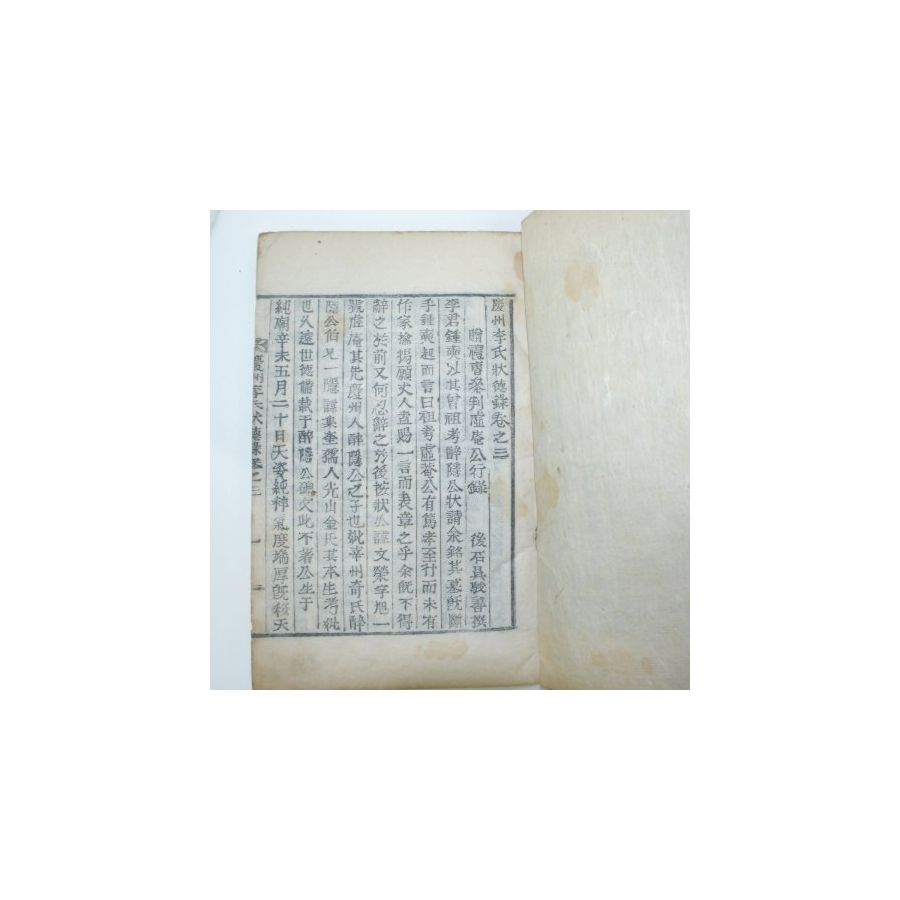 慶州李氏狀德錄卷之三
贈禮曹參判虛庵公行錄 後石吳駿善撰
李君鍾奭以其曾祖考醉隱公狀請余銘其墓旣斷
手鍾奭起而言曰祖考虛菴公有篤孝至行而未有
作家揄揚願丈人盍賜一言而表章之乎余旣不得
辭之於前又何忍辭之於後按狀公諱文榮字旭一
號虛庵其先慶州人醉隱公之子也妣幸州奇氏醉
隱公伯兄一隱諱集奎孺人光山金氏其本生考妣
也久遠世德備載于醉隱公碑次此不著公生于
純廟辛未五月二十日天姿純粹氣度端厚旣移天
慶州李氏狀德錄卷之三 一